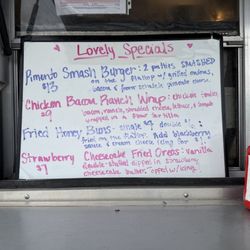 Lovely Specials
Pimento Smash Burger: 2 patties smashed
$13 on the flattop w/ grilled onions,
bacon & from scratch pimento
Chicken Bacon Ranch Wrap: chicken tender
$9 bacon, ranch, shredded cheese, lettuce, & tomato
wrapped in a flour tortilla
Fried Honey Buns: single $4 double
fried on the flattop Add blackberry
sauce & cream cheese icing for $1
Strawberry Cheesecake Fried Oreos: vanilla
$7 double stuffed dipped in strawberry
cheesecake batter, topped w/ icing